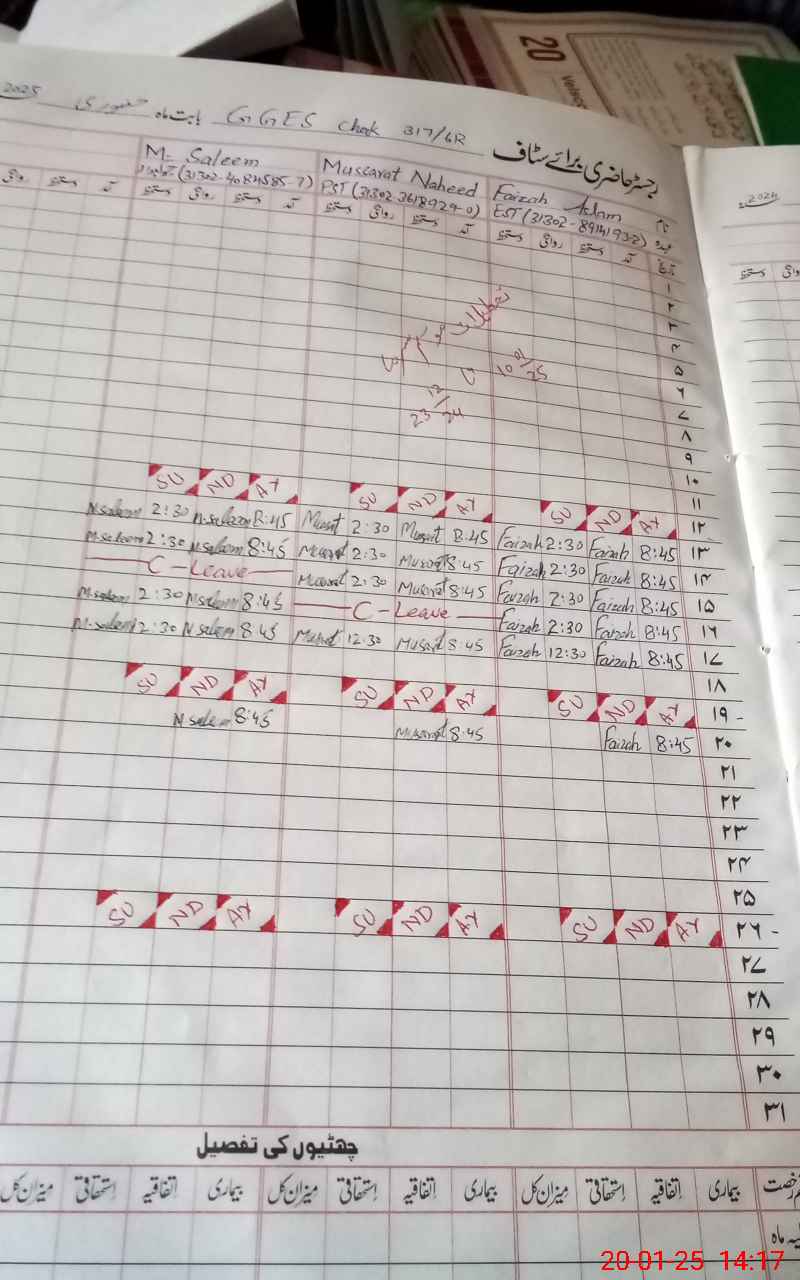 20
رجسٹر حاضری برائے سٹاف
GGES Chak 317/6R بابت ماہ جنوری 2025
نام Faizah Aslam Mussarat Naheed M. Saleem
عہدہ EST (31302-8914193-2) PST (31302-3618929-0) (31302-4084585-7)
تاریخ آمد دستخط روانگی دستخط آمد روانگی دستخط آمد دستخط روانگی دستخط آمد دستخط روانگی
۱
۲
۳
۴
۵
۶
۷
۸
۹
۱۰
تعطیلات موسم سرما
23 12/24 تا 10 01/25
۱۱
۱۲ SU ND AY SU ND AY SU ND AY
۱۳ 8:45 Faizah 2:30 Faizah 8:45 Musrat 2:30 Musrat 8:45 M.saleem 2:30 M.saleem
۱۴ 8:45 Faizah 2:30 Faizah 8:45 Musrat 2:30 Musrat 8:45 M.saleem 2:30 M.saleem
۱۵ 8:45 Faizah 2:30 Faizah 8:45 Musrat 2:30 Musrat C-Leave
۱۶ 8:45 Faizah 2:30 Faizah C-Leave 8:45 M.saleem 2:30 M.saleem
۱۷ 8:45 Faizah 12:30 Faizah 8:45 Musrat 12:30 Musrat 8:45 M.saleem 12:30 M.saleem
۱۸
۱۹ - SU ND AY SU ND AY SU ND AY
۲۰ 8:45 Faizah 8:45 Musarat 8:45 M.saleem
۲۱
۲۲
۲۳
۲۴
۲۵
۲۶ - SU ND AY SU ND AY SU ND AY
۲۷
۲۸
۲۹
۳۰
۳۱
چھٹیوں کی تفصیل
رخصت بیماری اتفاقیہ استحقاقی میزان کل بیماری اتفاقیہ استحقاقی میزان کل بیماری اتفاقیہ استحقاقی میزان کل
ماہ
2024
دستخط روانگی
20-01-25 14:17